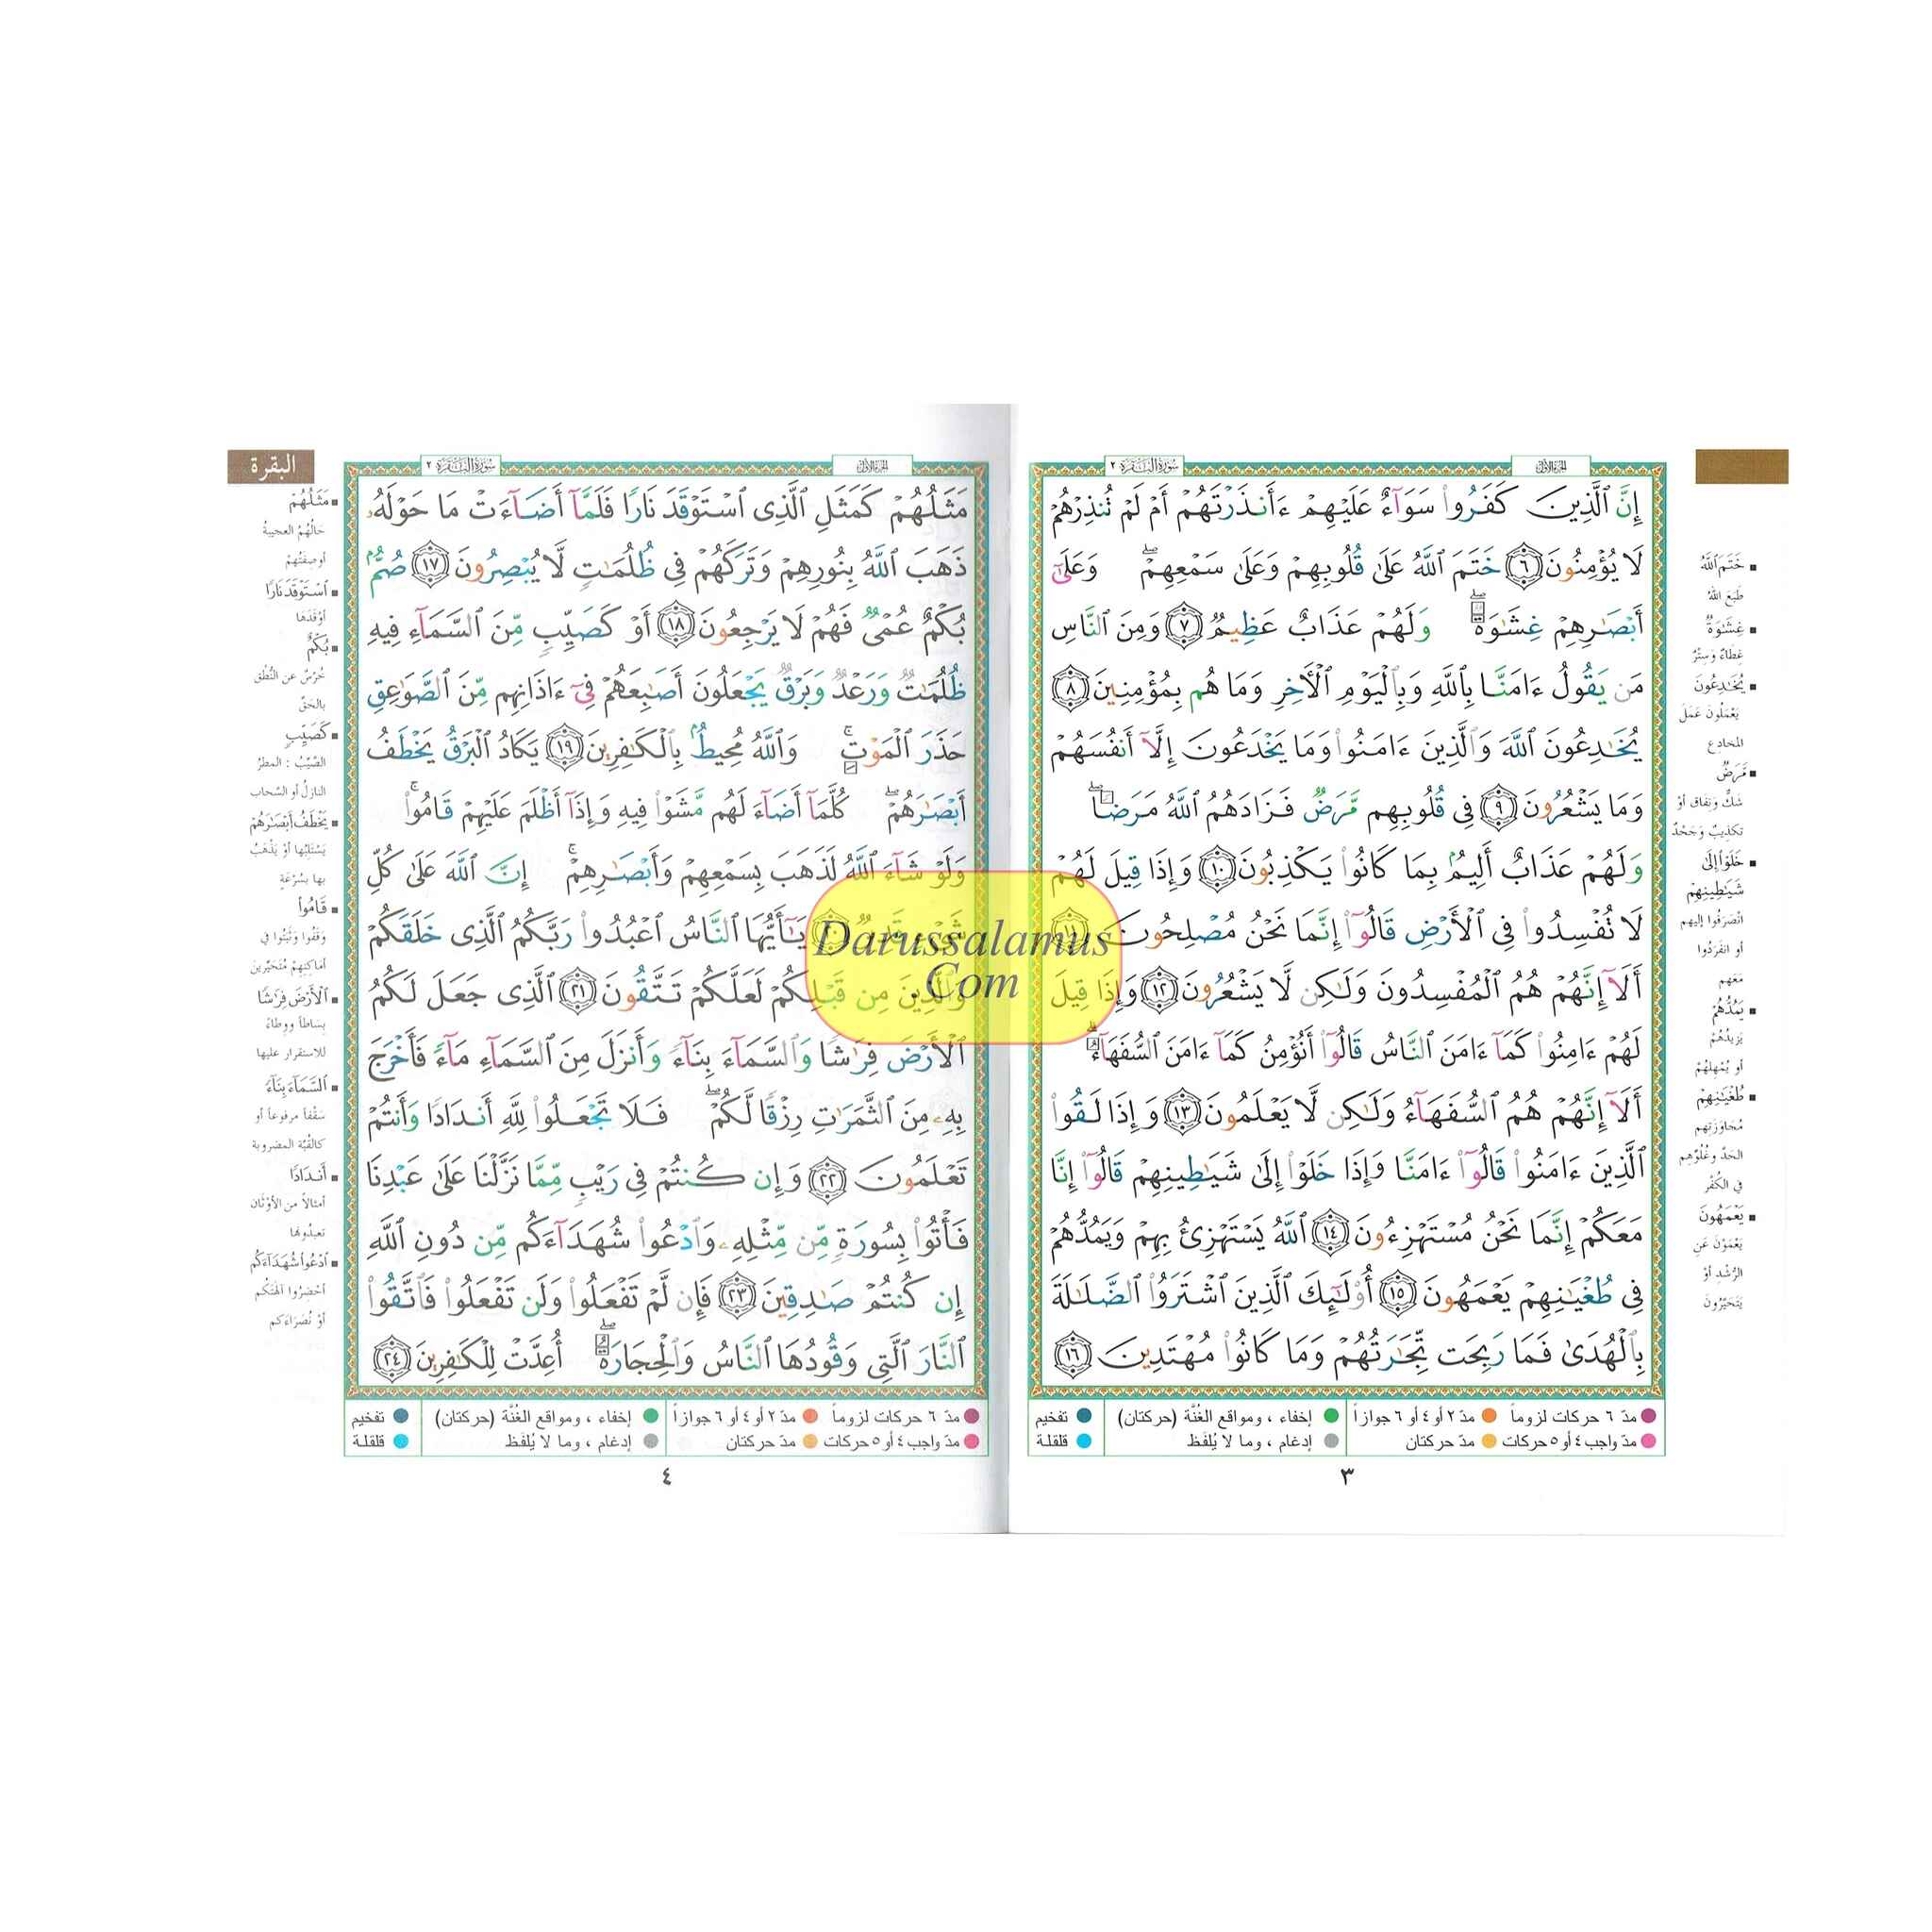 الجزء الأول
سورة البقرة ٢
إِنَّ ٱلَّذِينَ كَفَرُوا۟ سَوَآءٌ عَلَيْهِمْ ءَأَنذَرْتَهُمْ أَمْ لَمْ تُنذِرْهُمْ
لَا يُؤْمِنُونَ ٦ خَتَمَ ٱللَّهُ عَلَىٰ قُلُوبِهِمْ وَعَلَىٰ سَمْعِهِمْ ۖ وَعَلَىٰٓ
أَبْصَٰرِهِمْ غِشَٰوَةٌ ۖ وَلَهُمْ عَذَابٌ عَظِيمٌ ٧ وَمِنَ ٱلنَّاسِ
مَن يَقُولُ ءَامَنَّا بِٱللَّهِ وَبِٱلْيَوْمِ ٱلْأَخِرِ وَمَا هُم بِمُؤْمِنِينَ ٨
يُخَٰدِعُونَ ٱللَّهَ وَٱلَّذِينَ ءَامَنُوا۟ وَمَا يَخْدَعُونَ إِلَّآ أَنفُسَهُمْ
وَمَا يَشْعُرُونَ ٩ فِى قُلُوبِهِم مَّرَضٌ فَزَادَهُمُ ٱللَّهُ مَرَضًا ۖ
وَلَهُمْ عَذَابٌ أَلِيمٌۢ بِمَا كَانُوا۟ يَكْذِبُونَ ١٠ وَإِذَا قِيلَ لَهُمْ
لَا تُفْسِدُوا۟ فِى ٱلْأَرْضِ قَالُوٓا۟ إِنَّمَا نَحْنُ مُصْلِحُونَ ١١
أَلَآ إِنَّهُمْ هُمُ ٱلْمُفْسِدُونَ وَلَٰكِن لَّا يَشْعُرُونَ ١٢ وَإِذَا قِيلَ
لَهُمْ ءَامِنُوا۟ كَمَآ ءَامَنَ ٱلنَّاسُ قَالُوٓا۟ أَنُؤْمِنُ كَمَآ ءَامَنَ ٱلسُّفَهَآءُ ۗ
أَلَآ إِنَّهُمْ هُمُ ٱلسُّفَهَآءُ وَلَٰكِن لَّا يَعْلَمُونَ ١٣ وَإِذَا لَقُوا۟
ٱلَّذِينَ ءَامَنُوا۟ قَالُوٓا۟ ءَامَنَّا وَإِذَا خَلَوْا۟ إِلَىٰ شَيَٰطِينِهِمْ قَالُوٓا۟ إِنَّا
مَعَكُمْ إِنَّمَا نَحْنُ مُسْتَهْزِءُونَ ١٤ ٱللَّهُ يَسْتَهْزِئُ بِهِمْ وَيَمُدُّهُمْ
فِى طُغْيَٰنِهِمْ يَعْمَهُونَ ١٥ أُو۟لَٰٓئِكَ ٱلَّذِينَ ٱشْتَرَوُا۟ ٱلضَّلَٰلَةَ
بِٱلْهُدَىٰ فَمَا رَبِحَت تِّجَٰرَتُهُمْ وَمَا كَانُوا۟ مُهْتَدِينَ ١٦
خَتَمَ ٱللَّهُ
طَبَعَ اللهُ
غِشَٰوَةٌ
غِطَاءٌ وَسِتْرٌ
يُخَٰدِعُونَ
يَعْمَلُونَ عَمَلَ
المخادع
مَّرَضٌ
شَكٌّ ونِفاق أوْ
تكذيبٌ وَجَحْدٌ
خَلَوْا۟ إِلَىٰ
شَيَٰطِينِهِمْ
انْصَرَفُوا إليهم
أو انفَرَدُوا
مَعَهم
يَمُدُّهُمْ
يَزِيدُهُمْ
أو يُمْهِلهُمْ
طُغْيَٰنِهِمْ
مُجَاوَزَتِهم
الحَدَّ وغُلُوِّهِم
في الكُفْرِ
يَعْمَهُونَ
يَعْمَوْنَ عَنِ
الرُّشْدِ أوْ
يَتَحَيَّرُونَ
مدّ ٦ حركات لزوماً مدّ ٢ أو ٤ أو ٦ جوازاً إخفاء ، ومواقع الغُنَّة (حركتان) تفخيم
مدّ واجب ٤ أو ٥ حركات مدّ حركتان إدغام ، وما لا يُلفَظ قلقلة
٣
الجزء الأول
سورة البقرة ٢
البقرة
مَثَلُهُمْ كَمَثَلِ ٱلَّذِى ٱسْتَوْقَدَ نَارًا فَلَمَّآ أَضَآءَتْ مَا حَوْلَهُۥ
ذَهَبَ ٱللَّهُ بِنُورِهِمْ وَتَرَكَهُمْ فِى ظُلُمَٰتٍ لَّا يُبْصِرُونَ ١٧ صُمٌّۢ
بُكْمٌ عُمْىٌ فَهُمْ لَا يَرْجِعُونَ ١٨ أَوْ كَصَيِّبٍ مِّنَ ٱلسَّمَآءِ فِيهِ
ظُلُمَٰتٌ وَرَعْدٌ وَبَرْقٌ يَجْعَلُونَ أَصَٰبِعَهُمْ فِىٓ ءَاذَانِهِم مِّنَ ٱلصَّوَٰعِقِ
حَذَرَ ٱلْمَوْتِ ۚ وَٱللَّهُ مُحِيطٌۢ بِٱلْكَٰفِرِينَ ١٩ يَكَادُ ٱلْبَرْقُ يَخْطَفُ
أَبْصَٰرَهُمْ ۖ كُلَّمَآ أَضَآءَ لَهُم مَّشَوْا۟ فِيهِ وَإِذَآ أَظْلَمَ عَلَيْهِمْ قَامُوا۟ ۚ
وَلَوْ شَآءَ ٱللَّهُ لَذَهَبَ بِسَمْعِهِمْ وَأَبْصَٰرِهِمْ ۚ إِنَّ ٱللَّهَ عَلَىٰ كُلِّ
شَىْءٍ قَدِيرٌ ٢٠ يَٰٓأَيُّهَا ٱلنَّاسُ ٱعْبُدُوا۟ رَبَّكُمُ ٱلَّذِى خَلَقَكُمْ
وَٱلَّذِينَ مِن قَبْلِكُمْ لَعَلَّكُمْ تَتَّقُونَ ٢١ ٱلَّذِى جَعَلَ لَكُمُ
ٱلْأَرْضَ فِرَٰشًا وَٱلسَّمَآءَ بِنَآءً وَأَنزَلَ مِنَ ٱلسَّمَآءِ مَآءً فَأَخْرَجَ
بِهِۦ مِنَ ٱلثَّمَرَٰتِ رِزْقًا لَّكُمْ ۖ فَلَا تَجْعَلُوا۟ لِلَّهِ أَندَادًا وَأَنتُمْ
تَعْلَمُونَ ٢٢ وَإِن كُنتُمْ فِى رَيْبٍ مِّمَّا نَزَّلْنَا عَلَىٰ عَبْدِنَا
فَأْتُوا۟ بِسُورَةٍ مِّن مِّثْلِهِۦ وَٱدْعُوا۟ شُهَدَآءَكُم مِّن دُونِ ٱللَّهِ
إِن كُنتُمْ صَٰدِقِينَ ٢٣ فَإِن لَّمْ تَفْعَلُوا۟ وَلَن تَفْعَلُوا۟ فَٱتَّقُوا۟
ٱلنَّارَ ٱلَّتِى وَقُودُهَا ٱلنَّاسُ وَٱلْحِجَارَةُ ۖ أُعِدَّتْ لِلْكَٰفِرِينَ ٢٤
مَثَلُهُمْ
حَالُهُمُ العجيبةُ
أو صِفَتُهمْ
ٱسْتَوْقَدَ نَارًا
أوْقَدَهَا
بُكْمٌ
خُرْسٌ عن النُّطْق
بالحَقّ
كَصَيِّبٍ
الصَّيِّبُ : المطرُ
النازِلُ أو السَّحاب
يَخْطَفُ أَبْصَٰرَهُمْ
يَسْتَلِبُها أوْ يَذْهَبُ
بها بسُرْعَةٍ
قَامُوا۟
وَقَفُوا وَثَبَتُوا في
أماكنِهِمْ مُتَحَيِّرينَ
ٱلْأَرْضَ فِرَٰشًا
بِسَاطاً ووِطاءً
للاستقرار عليها
ٱلسَّمَآءَ بِنَآءً
سَقْفاً مرفوعاً أو
كالقُبّة المضروبة
أَندَادًا
أمثالاً من الأوْثَان
تعبدُونها
ٱدْعُوا۟ شُهَدَآءَكُم
أحْضِرُوا آلهتَكُم
أوْ نُصَرَاءَكم
مدّ ٦ حركات لزوماً مدّ ٢ أو ٤ أو ٦ جوازاً إخفاء ، ومواقع الغُنَّة (حركتان) تفخيم
مدّ واجب ٤ أو ٥ حركات مدّ حركتان إدغام ، وما لا يُلفَظ قلقلة
٤
Darussalamus
.Com